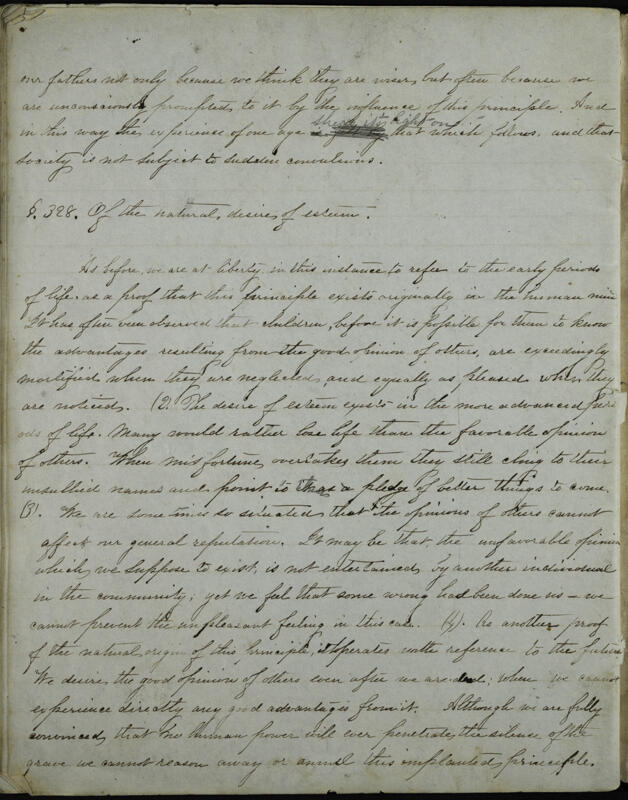 our fathers not only because we think they are wiser, but often because we
are unconsciously prompted to it by the influence of this principle. And
in this way the experience of one age sheds its light on that which follows, and that
society is not subject to sudden convulsions.
§. 328. Of the natural desire of esteem.
As before, we are at liberty, in this instance to refer to the early periods
of life as a proof that this principle exists originally in the human min
It has often been observed that children, before it is possible for them to know
the advantages resulting from the good opinion of others, are exceedingly
mortified when they are neglected and equally as pleased when they
are noticed. (2. The desire of esteem exists in the more advanced peri
ods of life. Many would rather lose life than the favorable opinion
of others. When misfortune overtakes them they still cling to their
unsullied names and point to as a pledge of better things to come.
(3). We are sometimes so situated that the opinions of others cannot
affect our general reputation. It may be that the unfavorable opinion
which we suppose to exist, is not entertained by another individual
in the community; yet we feel that some wrong has been done us – we
cannot prevent the unpleasant feeling in this case. (4). As another proof
of the natural origin of this principle, it operates with reference to the future
We desire the good opinion of others even after we are dead; when we cannot
experience directly any good advantages from it. Although we are fully
convinced that no human power will ever penetrate the silence of the
grave we cannot reason away or annul this implanted principle.